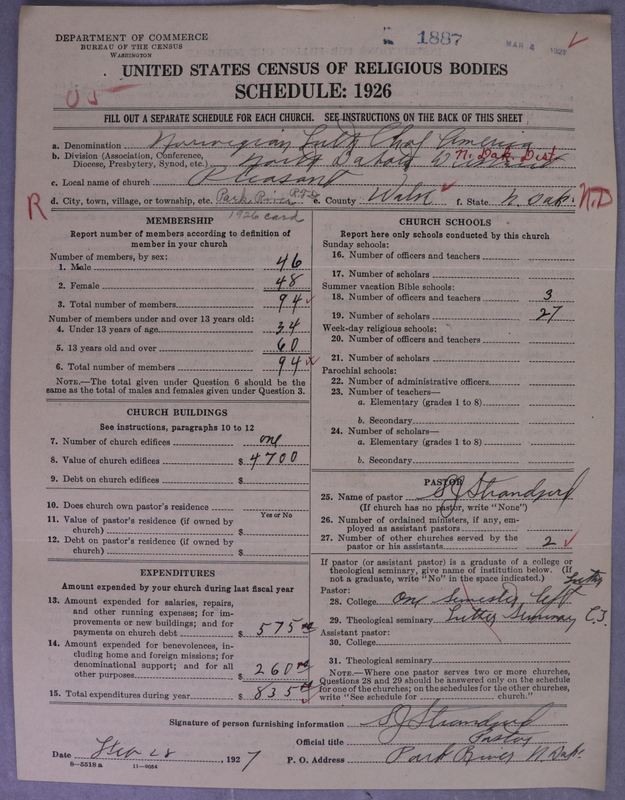 DEPARTMENT OF COMMERCE
BUREAU OF THE CENSUS
WASHINGTON
1887
MAR 4 1927
UNITED STATES CENSUS OF RELIGIOUS BODIES
SCHEDULE: 1926
FILL OUT A SEPARATE SCHEDULE FOR EACH CHURCH. SEE INSTRUCTIONS ON THE BACK OF THIS SHEET
a. Denomination Norwegian Luth Ch of America
b. Division (Association, Conference, Diocese, Presbytery, Synod, etc.) North Dakota District N. Dak. Dist.
c. Local name of church Pleasant
R
d. City, town, village, or township, etc. Park River e. County Walsh f. State N. Dak. N.D
1926 card
MEMBERSHIP
Report number of members according to definition of member in your church
Number of members, by sex:
1. Male 46
2. Female 48
3. Total number of members 94
Number of members under and over 13 years old:
4. Under 13 years of age 34
5. 13 years old and over 60
6. Total number of members 94
NOTE.—The total given under Question 6 should be the same as the total of males and females given under Question 3.
CHURCH BUILDINGS
See instructions, paragraphs 10 to 12
7. Number of church edifices one
8. Value of church edifices $ 4700
9. Debt on church edifices $
10. Does church own pastor's residence
Yes or No
11. Value of pastor's residence (if owned by church) $
12. Debt on pastor's residence (if owned by church) $
EXPENDITURES
Amount expended by your church during last fiscal year
13. Amount expended for salaries, repairs, and other running expenses; for improvements or new buildings; and for payments on church debt $ 575
14. Amount expended for benevolences, including home and foreign missions; for denominational support; and for all other purposes $ 260
15. Total expenditures during year $ 835
CHURCH SCHOOLS
Report here only schools conducted by this church
Sunday schools:
16. Number of officers and teachers
17. Number of scholars
Summer vacation Bible schools:
18. Number of officers and teachers 3
19. Number of scholars 27
Week-day religious schools:
20. Number of officers and teachers
21. Number of scholars
Parochial schools:
22. Number of administrative officers
23. Number of teachers—
a. Elementary (grades 1 to 8)
b. Secondary
24. Number of scholars—
a. Elementary (grades 1 to 8)
b. Secondary
PASTOR
25. Name of pastor S J Strandjord
(If church has no pastor, write "None")
26. Number of ordained ministers, if any, employed as assistant pastors
27. Number of other churches served by the pastor or his assistants 2
If pastor (or assistant pastor) is a graduate of a college or theological seminary, give name of institution below. (If not a graduate, write "No" in the space indicated.)
Pastor:
28. College One semester left Luther
29. Theological seminary Luther Seminary
Assistant pastor:
30. College
31. Theological seminary
NOTE.—Where one pastor serves two or more churches, Questions 28 and 29 should be answered only on the schedule for one of the churches; on the schedules for the other churches, write "See schedule for church."
Signature of person furnishing information S J Strandjord
Official title Pastor
Date 28, 1927 P. O. Address Park River N. Dak.
8—5518a 11—9084